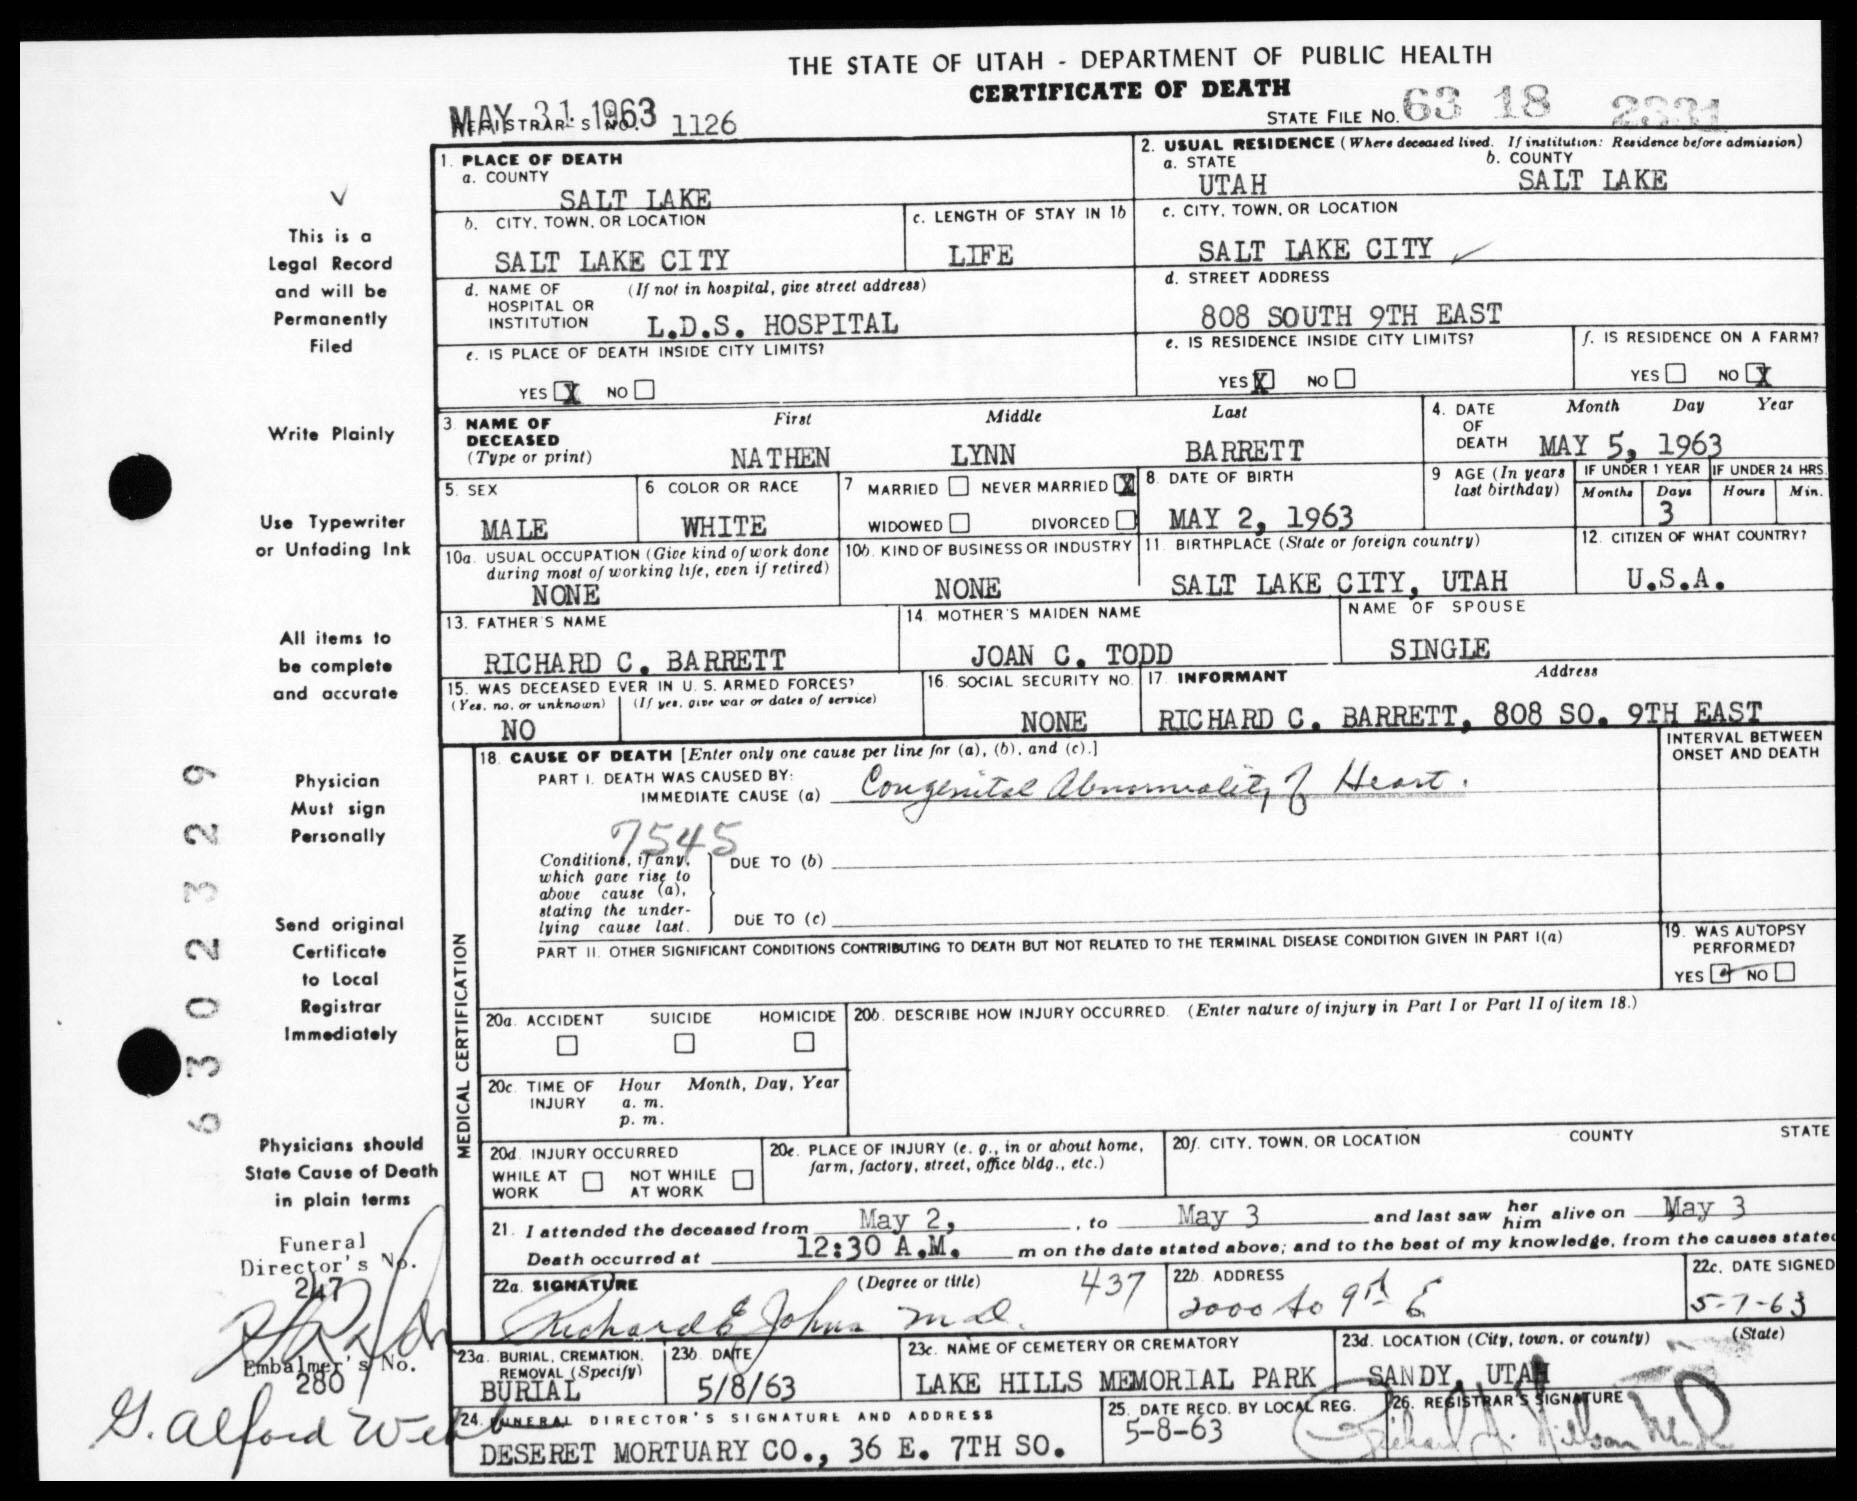 THE STATE OF UTAH - DEPARTMENT OF PUBLIC HEALTH
CERTIFICATE OF DEATH
MAY 31 1963
REGISTRAR'S NO. 1126
STATE FILE NO. 63 18 2331
1. PLACE OF DEATH
a. COUNTY
SALT LAKE
2. USUAL RESIDENCE (Where deceased lived. If institution: Residence before admission)
a. STATE
UTAH
b. COUNTY
SALT LAKE
b. CITY, TOWN, OR LOCATION
SALT LAKE CITY
c. LENGTH OF STAY IN 1b
LIFE
c. CITY, TOWN, OR LOCATION
SALT LAKE CITY
d. NAME OF HOSPITAL OR INSTITUTION
(If not in hospital, give street address)
L.D.S. HOSPITAL
d. STREET ADDRESS
808 SOUTH 9TH EAST
e. IS PLACE OF DEATH INSIDE CITY LIMITS?
YES X NO
e. IS RESIDENCE INSIDE CITY LIMITS?
YES X NO
f. IS RESIDENCE ON A FARM?
YES NO X
3. NAME OF DECEASED (Type or print)
First Middle Last
NATHEN LYNN BARRETT
4. DATE OF DEATH
Month Day Year
MAY 5, 1963
5. SEX
MALE
6 COLOR OR RACE
WHITE
7 MARRIED NEVER MARRIED X
WIDOWED DIVORCED
8. DATE OF BIRTH
MAY 2, 1963
9 AGE (In years last birthday)
IF UNDER 1 YEAR
Months Days
3
IF UNDER 24 HRS.
Hours Min.
10a. USUAL OCCUPATION (Give kind of work done during most of working life, even if retired)
NONE
10b. KIND OF BUSINESS OR INDUSTRY
NONE
11. BIRTHPLACE (State or foreign country)
SALT LAKE CITY, UTAH
12. CITIZEN OF WHAT COUNTRY?
U.S.A.
13. FATHER'S NAME
RICHARD C. BARRETT
14. MOTHER'S MAIDEN NAME
JOAN C. TODD
NAME OF SPOUSE
SINGLE
15. WAS DECEASED EVER IN U.S. ARMED FORCES?
(Yes, no, or unknown) (If yes, give war or dates of service)
NO
16. SOCIAL SECURITY NO.
NONE
17. INFORMANT Address
RICHARD C. BARRETT, 808 SO. 9TH EAST
MEDICAL CERTIFICATION
18. CAUSE OF DEATH [Enter only one cause per line for (a), (b), and (c).]
INTERVAL BETWEEN ONSET AND DEATH
PART I. DEATH WAS CAUSED BY:
IMMEDIATE CAUSE (a) Congenital Abnormality of Heart.
7545
Conditions, if any, which gave rise to above cause (a), stating the underlying cause last.
DUE TO (b)
DUE TO (c)
PART II. OTHER SIGNIFICANT CONDITIONS CONTRIBUTING TO DEATH BUT NOT RELATED TO THE TERMINAL DISEASE CONDITION GIVEN IN PART I(a)
19. WAS AUTOPSY PERFORMED?
YES NO
20a. ACCIDENT SUICIDE HOMICIDE
20b. DESCRIBE HOW INJURY OCCURRED. (Enter nature of injury in Part I or Part II of item 18.)
20c. TIME OF INJURY
Hour Month, Day, Year
a. m.
p. m.
20d. INJURY OCCURRED
WHILE AT WORK NOT WHILE AT WORK
20e. PLACE OF INJURY (e. g., in or about home, farm, factory, street, office bldg., etc.)
20f. CITY, TOWN, OR LOCATION COUNTY STATE
21. I attended the deceased from May 2, , to May 3 and last saw her him alive on May 3
Death occurred at 12:30 A.M. m on the date stated above; and to the best of my knowledge, from the causes stated
22a. SIGNATURE (Degree or title)
Richard E Johns M.D. 437
22b. ADDRESS
2000 So 9th E
22c. DATE SIGNED
5-7-63
23a. BURIAL, CREMATION, REMOVAL (Specify)
BURIAL
23b. DATE
5/8/63
23c. NAME OF CEMETERY OR CREMATORY
LAKE HILLS MEMORIAL PARK
23d. LOCATION (City, town, or county) (State)
SANDY, UTAH
24. FUNERAL DIRECTOR'S SIGNATURE AND ADDRESS
DESERET MORTUARY CO., 36 E. 7TH SO.
25. DATE RECD. BY LOCAL REG.
5-8-63
26. REGISTRAR'S SIGNATURE
This is a
Legal Record
and will be
Permanently
Filed
Write Plainly
Use Typewriter
or Unfading Ink
All items to
be complete
and accurate
Physician
Must sign
Personally
Send original
Certificate
to Local
Registrar
Immediately
Physicians should
State Cause of Death
in plain terms
Funeral
Director's No.
247
Embalmer's No.
280
G. Alford Webb
6302329